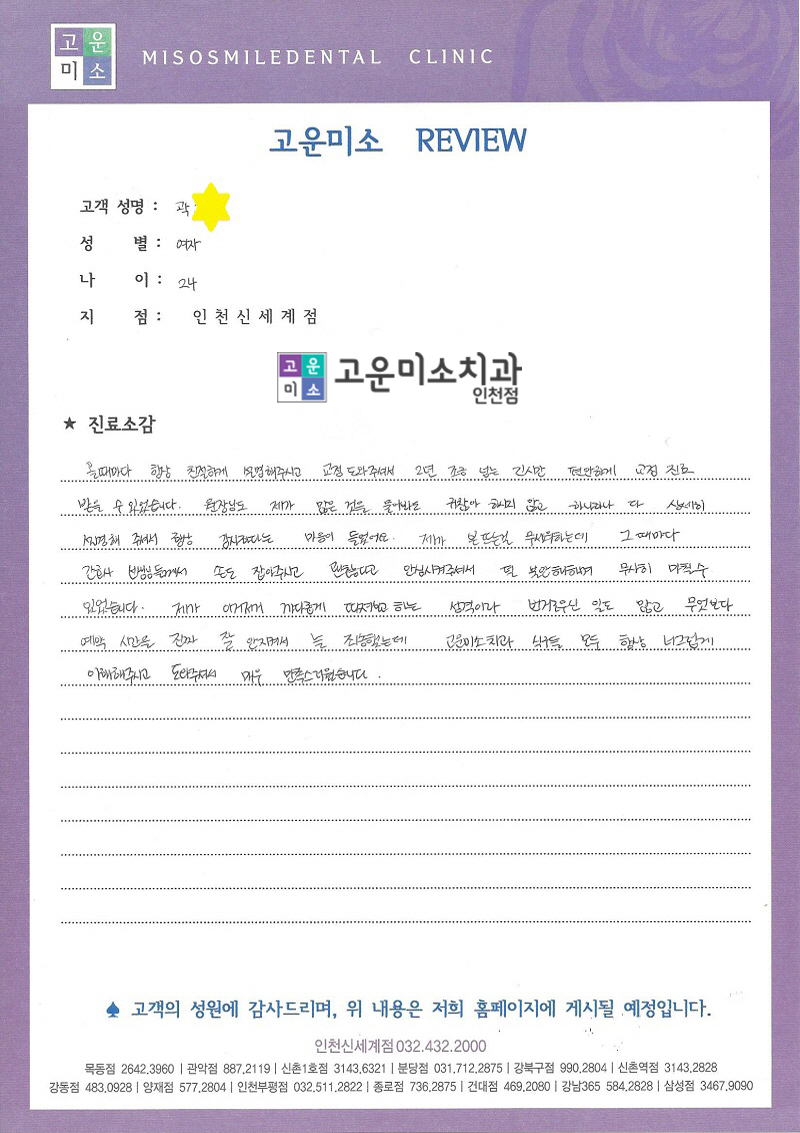 고운
미소
MISOSMILEDENTAL CLINIC
고운미소 REVIEW
고객 성명 : 곽
성 별 : 여자
나 이 : 24
지 점 : 인천신세계점
고운
미소
고운미소치과
인천점
★ 진료소감
올때마다 항상 친절하게 설명해주시고 교정 도와주셔서 2년 조금 넘는 긴시간 편안하게 교정 진료
받을 수 있었습니다. 원장님도 제가 많은 것을 물어봐도 귀찮아 하시지 않고 하나하나 다 상세히
설명해 주셔서 항상 감사하다는 마음이 들었어요. 제가 본뜨는걸 무서워하는데 그 때마다
간호사 선생님들께서 손도 잡아주시고 괜찮다고 안심시켜주셔서 덜 불안해하며 무사히 마칠수
있었습니다. 제가 이거저거 까다롭게 따져보고 하는 성격이라 번거로우신 일도 많고 무엇보다
예약 시간을 진짜 잘 안지켜서 늘 죄송했는데 고운미소치과 식구들 모두 항상 너그럽게
이해해주시고 도와주셔서 매우 만족스러웠습니다.
♠ 고객의 성원에 감사드리며, 위 내용은 저희 홈페이지에 게시될 예정입니다.
인천신세계점 032.432.2000
목동점 2642.3960 | 관악점 887.2119 | 신촌1호점 3143.6321 | 분당점 031.712.2875 | 강북구점 990.2804 | 신촌역점 3143.2828
강동점 483.0928 | 양재점 577.2804 | 인천부평점 032.511.2822 | 종로점 736.2875 | 건대점 469.2080 | 강남365 584.2828 | 삼성점 3467.9090